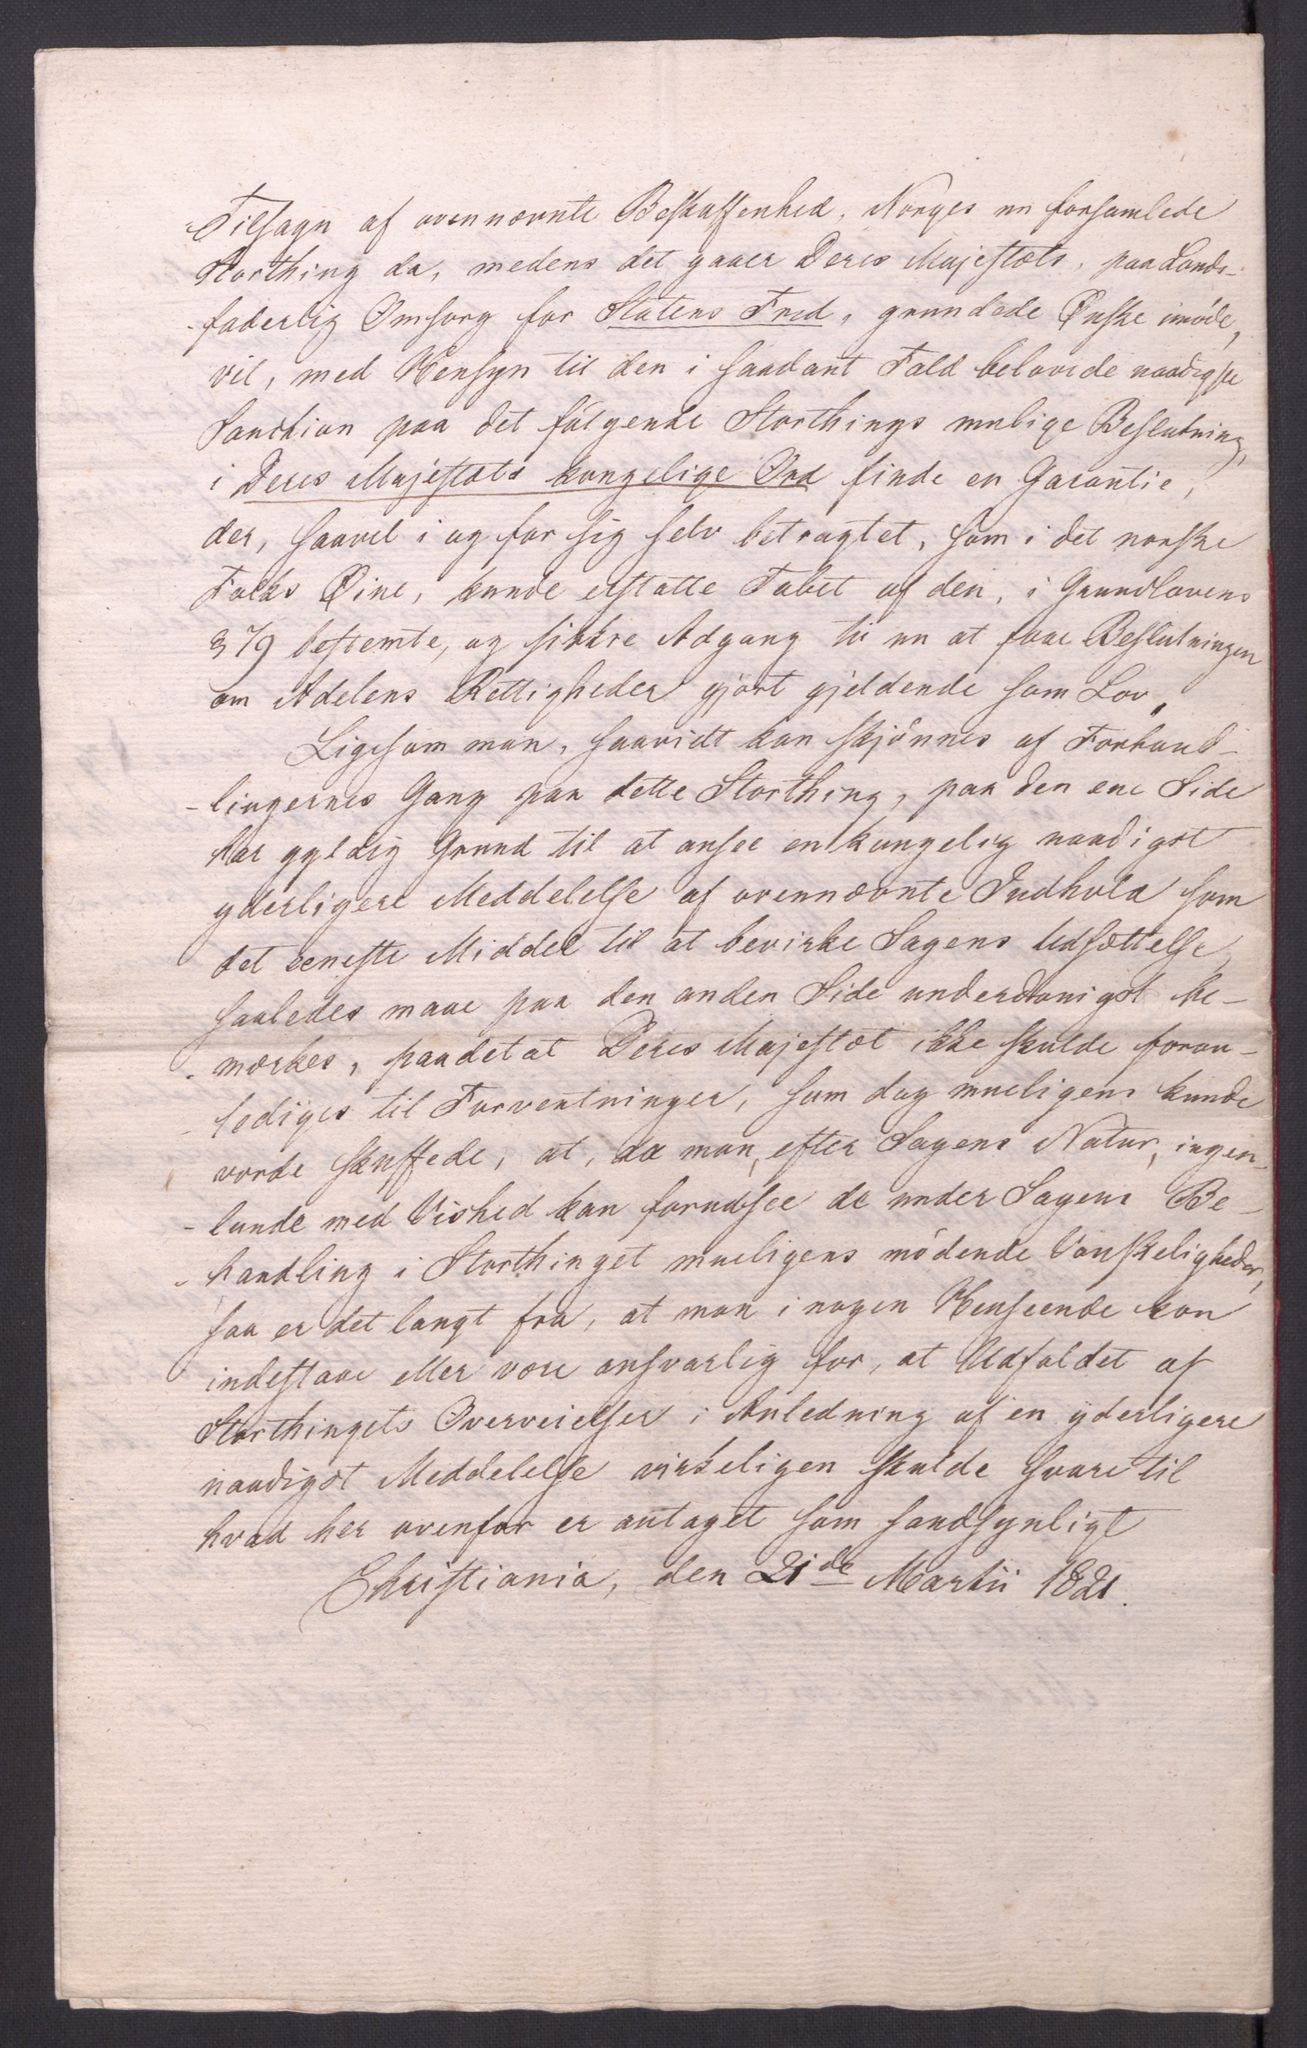 Tilsagn af ovennævnte Beskaffenhed, Norges nu forsamlede
Storthing da, medens det gaaer Deres Majestæts, paa Lands-
-faderlig Omsorg for Statens Fred, grundede Ønske imöde,
vil, med Hensyn til den i saadant Fald belovede naadigste
Sanction paa det fölgende Storthings mulige Beslutning,
i Deres Majestæts kongelige Ord finde en Garantie,
der, saavel i og for sig selv betragtet, som i det norske
Folks Øine, kunde erstatte Tabet af den, i Grundlovens
§ 79 bestemte, og sikkre Adgang til nu at faae Beslutningen
om Adelens Rettigheder gjort gjeldende som Lov.
Ligesom man, saavidt kan skjönnes af Forhand-
-lingernes Gang paa dette Storthing, paa den ene Side
har gyldig Grund til at ansee en kongelig naadigst
yderligere Meddelelse af ovennævnte Indhold som
det eeneste Middel til at bevirke Sagens Udsættelse,
saaledes maae paa den anden Side underdanigst be-
-mærkes, paadet at Deres Majestæt ikke skulde foran-
-lediges til Forventninger, som dog mueligens kunde
vorde skuffede, at, da man, efter Sagens Natur, ingen-
-lunde med Vished kan forudsee de under Sagens Be-
-handling i Storthinget mueligens mödende Vanskeligheder,
saa er det langt fra, at man i nogen Henseende kan
indestaae eller være ansvarlig for, at Udfaldet af
Storthingets Overveielser i Anledning af en yderligere
naadigst Meddelelse virkeligen skulde svare til
hvad her ovenfor er antaget som sandsynligt
Christiania, den 21de Martii 1821.